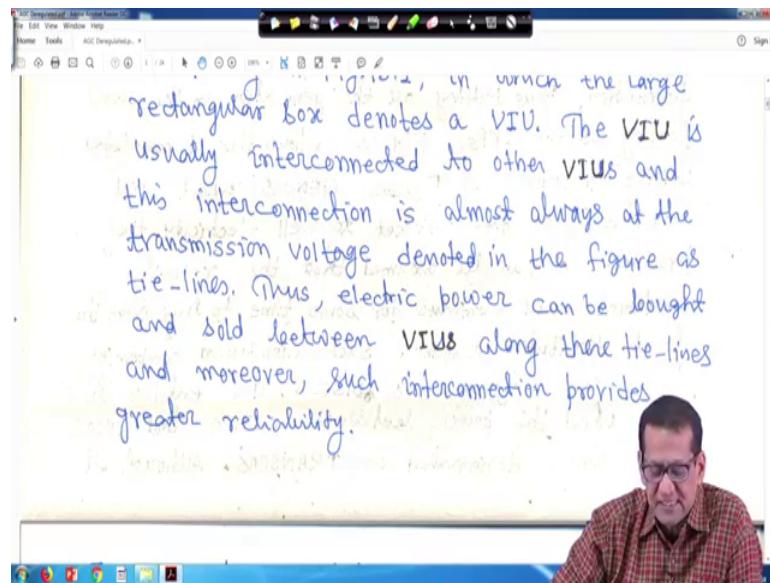 AGC Deregulated.pdf - Adobe Acrobat Reader DC
File Edit View Window Help
Home Tools AGC Deregulated.p... × Sign
Fig. in which the large
rectangular box denotes a VIU. The VIU is
usually interconnected to other VIUs and
this interconnection is almost always at the
transmission voltage denoted in the figure as
tie-lines. Thus, electric power can be bought
and sold between VIUs along there tie-lines
and moreover, such interconnection provides
greater reliability.